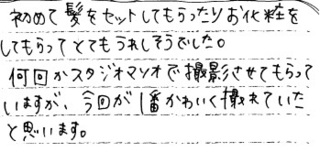 初めて髪をセットしてもらったりお化粧を
してもらってとてもうれしそうでした。
何回かスタジオマリオで撮影させてもらって
いますが、今回が1番かわいく撮れていた
と思います。